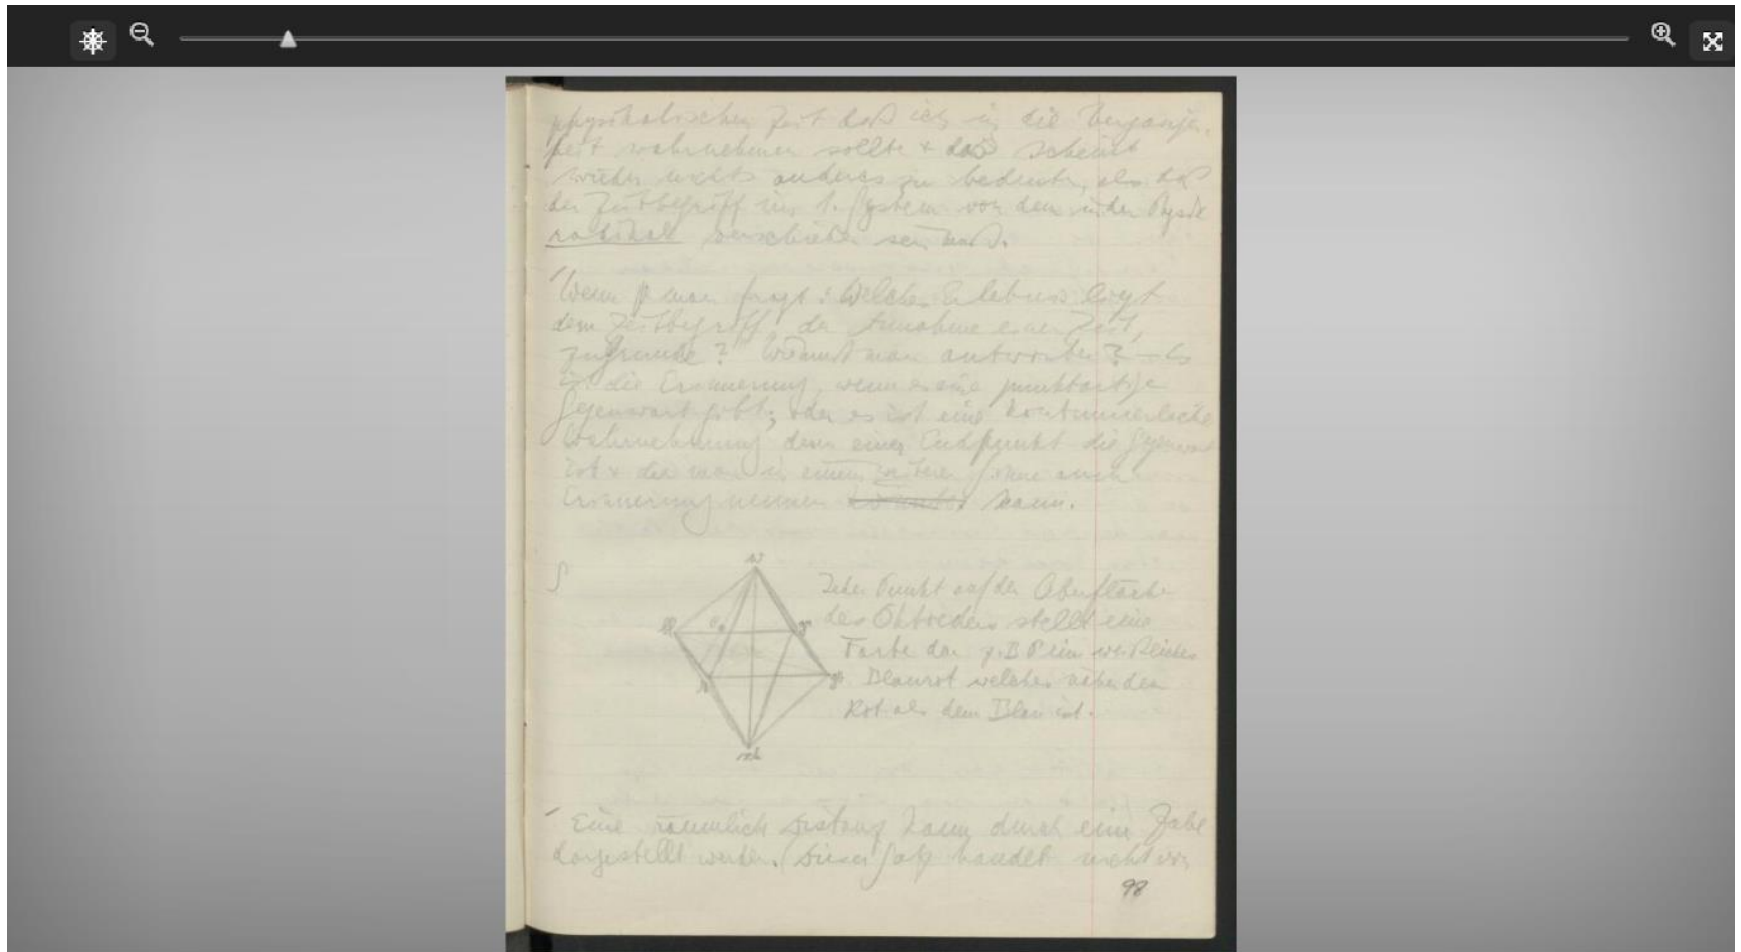 physikalischen Zeit daß ich in die Vergangen-
heit wahrnehmen sollte + das scheint
wieder nichts anderes zu bedeuten, als daß
der Zeitbegriff im 1. System von dem in der Physik
radikal verschieden sein muß.
Wenn man fragt: Welches Erlebnis liegt
dem Zeitbegriff, der Annahme einer Zeit,
zugrunde? Was muß man antworten? – Es
ist die Erinnerung, wenn es eine punktartige
Gegenwart gibt; oder es ist eine kontinuierliche
Wahrnehmung deren einer Endpunkt die Gegenwart
ist + die man in einem Sinne auch
Erinnerung nennen kann.
S
W
Jeder Punkt auf der Oberfläche
des Oktoeders stellt eine
Farbe dar z.B P ein weißliches
Blaurot welches näher dem
Rot als dem Blau ist.
Eine räumliche Distanz kann durch eine Zahl
dargestellt werden. Dieser Satz handelt nicht von
98